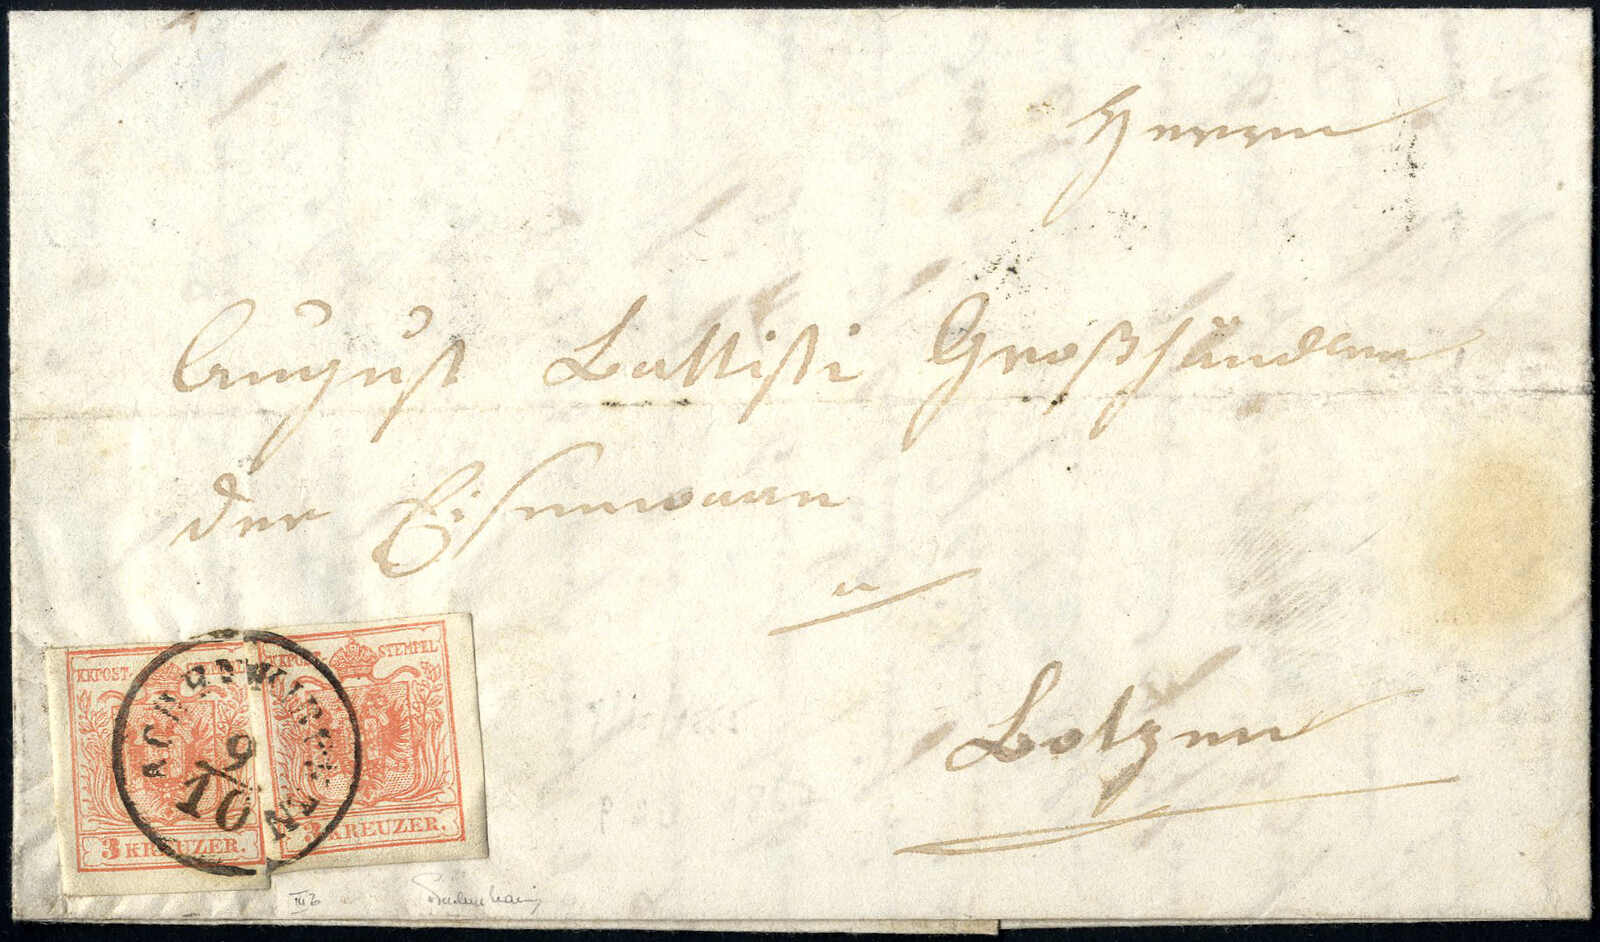 Herrn
August Battisti Großhändler
der Eisenwaaren
in
Botzen
KKPOST STEMPEL
3 KREUZER.
KKPOST STEMPEL
3 KREUZER.
ACHENKIRCHEN
9/10
III b